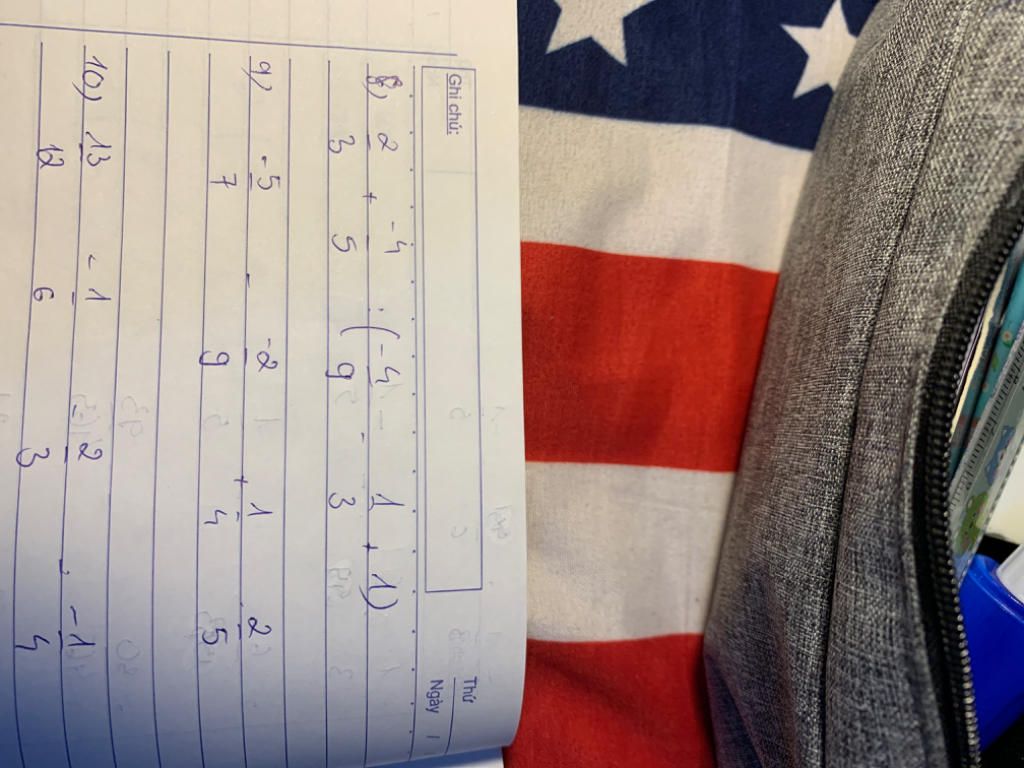 Thứ
Ghi chú: Ngày
8) 2/3 + -4/5 . (-4/9 - 1/3 + 1)
9) -5/7 - -2/9 + 1/4 2/5
10) 13/12 -1/6 2/3 - -1/4